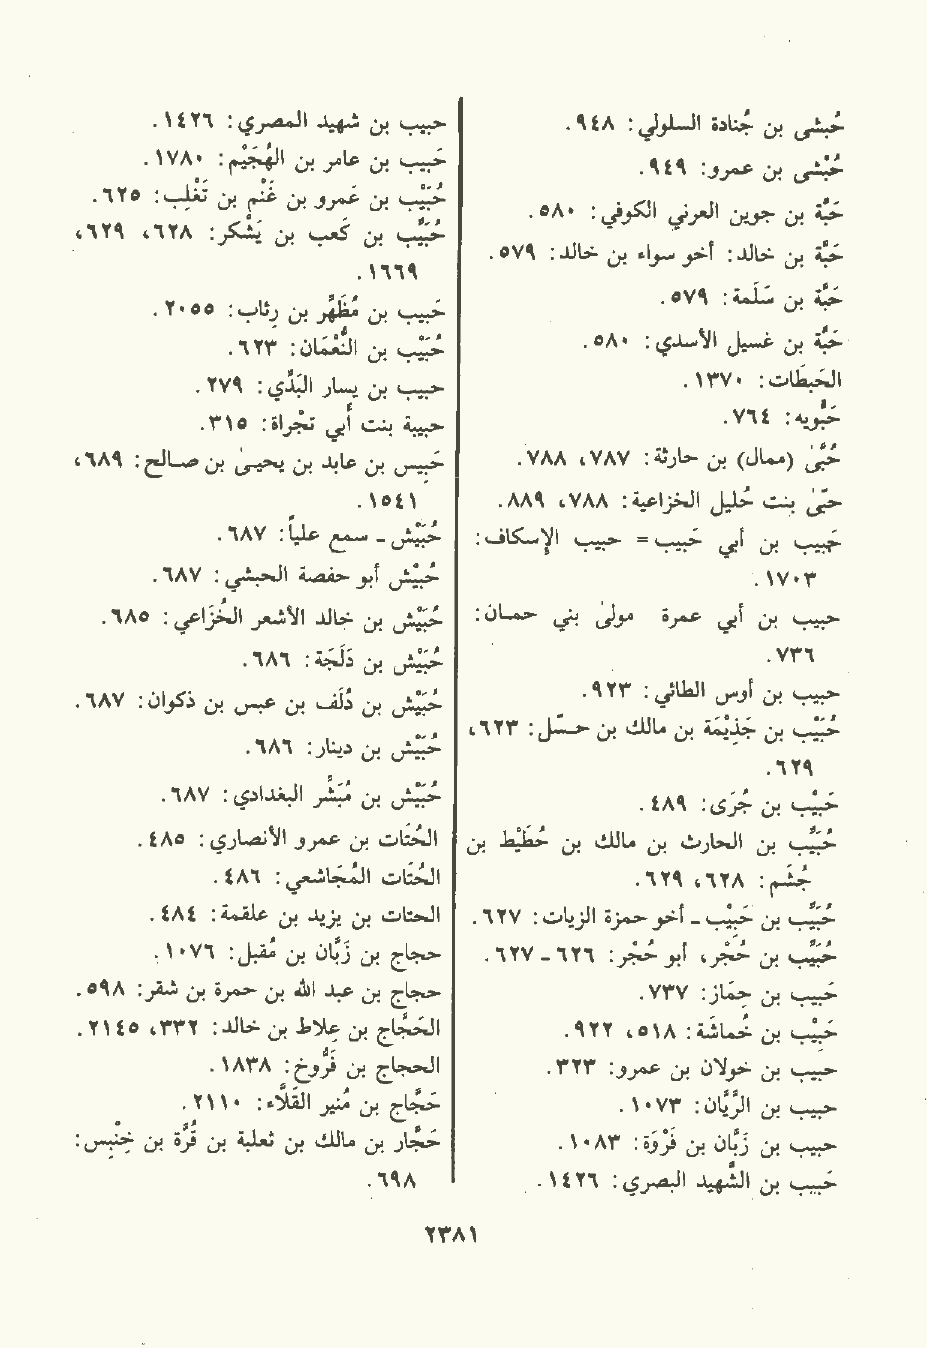 حُبشي بن جُنادة السلولي: ٩٤٨.
حُبْشي بن عمرو: ٩٤٩.
حَبَّة بن جوين العرني الكوفي: ٥٨٠.
حَبَّة بن خالد: أخو سواء بن خالد: ٥٧٩.
حَبَّة بن سَلَمة: ٥٧٩.
حَبَّة بن غسيل الأسدي: ٥٨٠.
الحَبطَات: ١٣٧٠.
حَبُّويه: ٧٦٤.
حُبَّىٰ (ممال) بن حارثة: ٧٨٧، ٧٨٨.
حبّىٰ بنت حُليل الخزاعية: ٧٨٨، ٨٨٩.
حَبيب بن أبي حَبيب = حبيب الإسكاف:
١٧٠٣.
حبيب بن أبي عمرة مولىٰ بني حمان:
٧٣٦.
حبيب بن أوس الطائي: ٩٢٣.
حُبَيْب بن جَذِيْمَة بن مالك بن حسل: ٦٢٣،
٦٢٩.
حَبيْب بن جُرَى: ٤٨٩.
حُبَيِّب بن الحارث بن مالك بن حُطَيْط بن
جُشَم: ٦٢٨، ٦٢٩.
حُبَيِّب بن حَبيْب ـ أخو حمزة الزيات: ٦٢٧.
حُبَيِّب بن حُجْر، أبو حُجْر: ٦٢٦ ـ ٦٢٧.
حَبيب بن حمَاز: ٧٣٧.
حَبِيْب بن خُمَاشَة: ٥١٨، ٩٢٢.
حبيب بن خولان بن عمرو: ٣٢٣.
حبيب بن الرَّيَّان: ١٠٧٣.
حبيب بن زَبَّان بن فَرْوَة: ١٠٨٣.
حَبيب بن الشَّهيد البصري: ١٤٢٦.
حبيب بن شهيد المصري: ١٤٢٦.
حَبيب بن عامر بن الهُجَيْم: ١٧٨٠.
حُبَيْب بن عَمرو بن غَنْم بن تَغْلِب: ٦٢٥.
حُبَيِّب بن كَعب بن يَشْكر: ٦٢٨، ٦٢٩،
١٦٦٩.
حَبيب بن مُظَهَّر بن رئاب: ٢٠٥٥.
حُبَيْب بن النُّعْمَان: ٦٢٣.
حبيب بن يسار البَدِّي: ٢٧٩.
حبيبة بنت أبي تجْراة: ٣١٥.
حَبِيس بن عابد بن يحيىٰ بن صالح: ٦٨٩،
١٥٤١.
حُبَيْش ـ سمع علياً: ٦٨٧.
حُبَيْش أبو حفصة الحبشي: ٦٨٧.
حُبَيْش بن خالد الأشعر الخُزَاعي: ٦٨٥.
حُبَيْش بن دَلَجَة: ٦٨٦.
حُبَيْش بن دُلَف بن عبس بن ذكوان: ٦٨٧.
حُبَيْش بن دينار: ٦٨٦.
حُبَيْش بن مُبَشِّر البغدادي: ٦٨٧.
الحُتَات بن عمرو الأنصاري: ٤٨٥.
الحُتَات المُجَاشعي: ٤٨٦.
الحتات بن يزيد بن علقمة: ٤٨٤.
حجاج بن زَبَّان بن مُقبل: ١٠٧٦.
حجاج بن عبد الله بن حمرة بن شقر: ٥٩٨.
الحَجَّاج بن عِلاط بن خالد: ٣٣٢، ٢١٤٥.
الحجاج بن فَرُّوخ: ١٨٣٨.
حَجَّاج بن مُنير القَلَّاء: ٢١١٠.
حَجَّار بن مالك بن ثعلبة بن قُرَّة بن خِنْبِس:
٦٩٨.
٢٣٨١